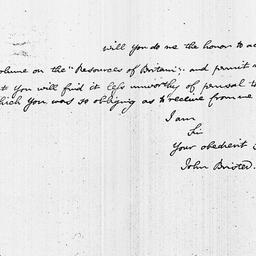 will you do me the honor to
volume on the "Resources of Britain"; and permit
you will find it less unworthy of perusal
which you was so obliging as to receive from me
I am
Sir
Your obedient
John Bristed.